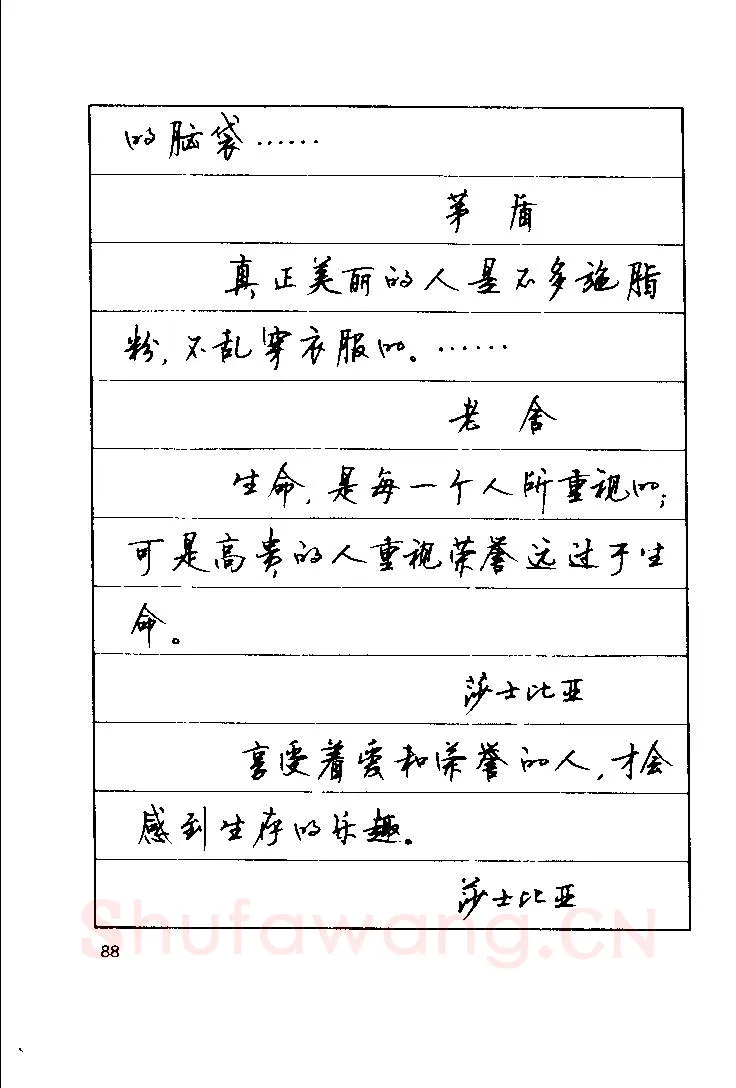 的脑袋……
茅 盾
真正美丽的人是不多施脂
粉，不乱穿衣服的。……
老 舍
生命，是每一个人所重视的；
可是高贵的人重视荣誉远过于生
命。
莎士比亚
享受着爱和荣誉的人，才会
感到生存的乐趣。
莎士比亚
Shufawang.CN
88